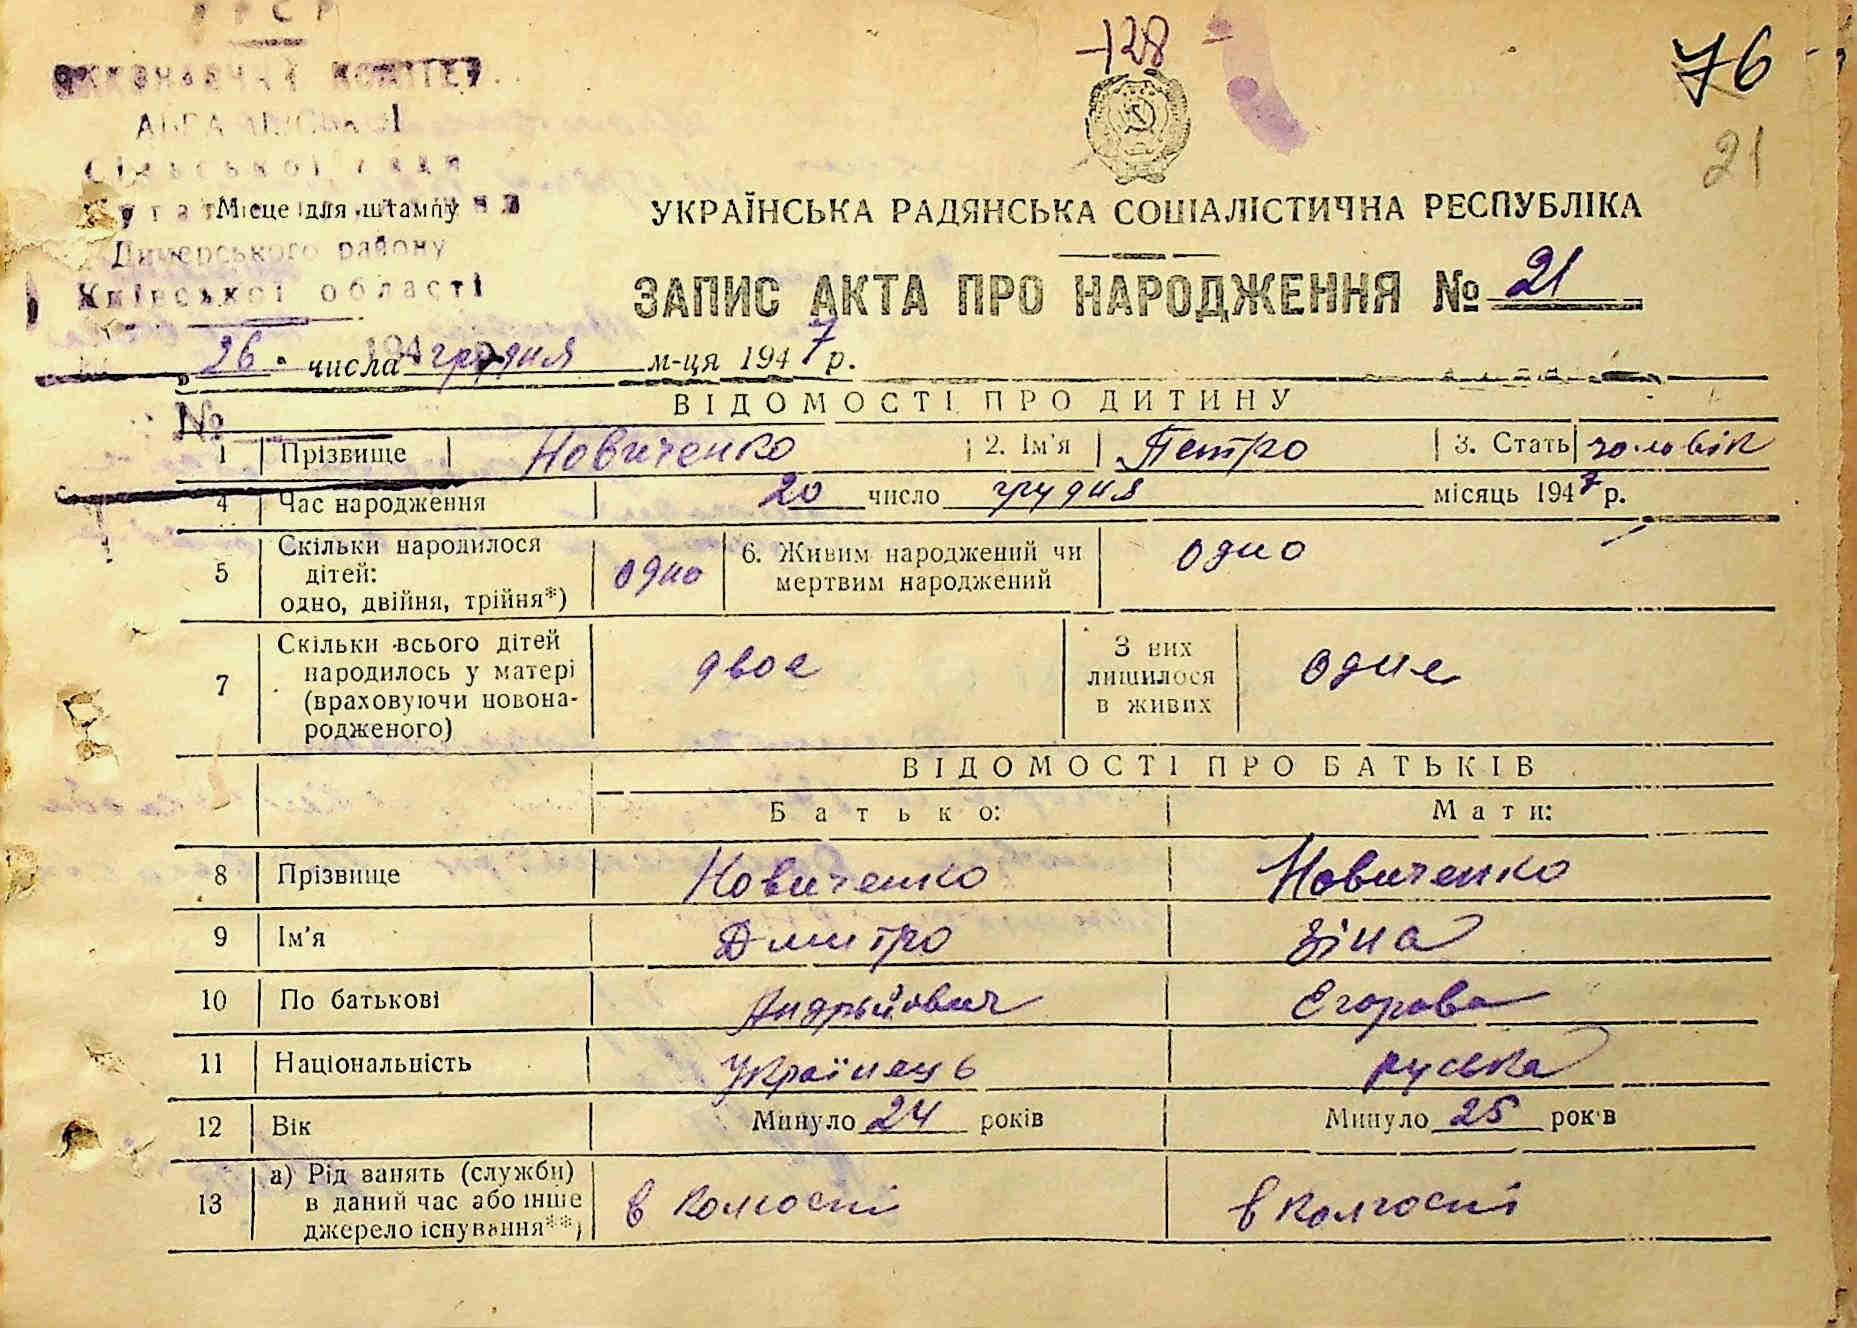 УРСР
ВИКОНАВЧИЙ КОМІТЕТ
Сільської ради
Димерського району
Київської області
194
№
Місце для штампу
-128
76
21
УКРАЇНСЬКА РАДЯНСЬКА СОЦІАЛІСТИЧНА РЕСПУБЛІКА
ЗАПИС АКТА ПРО НАРОДЖЕННЯ № 21
„ 26 " числа грудня м-ця 1947 р.
ВІДОМОСТІ ПРО ДИТИНУ
1 Прізвище Новиченко 2. Ім'я Петро 3. Стать чоловік
4 Час народження 20 число грудня місяць 1947 р.
5 Скільки народилося дітей: одно, двійня, трійня*) одно 6. Живим народжений чи мертвим народжений одно
7 Скільки всього дітей народилось у матері (враховуючи новонародженого) двое З них лишилося в живих одне
ВІДОМОСТІ ПРО БАТЬКІВ
Батько: Мати:
8 Прізвище Новиченко Новиченко
9 Ім'я Дмитро Зіна
10 По батькові Андрыйович Егорова
11 Національність Українець руська
12 Вік Минуло 24 років Минуло 25 років
13 а) Рід занять (служби) в даний час або інше джерело існування**) в колгоспі в колгоспі